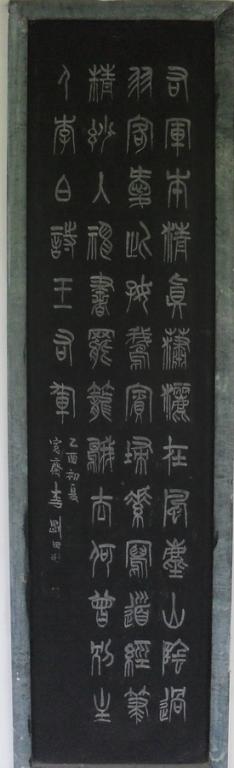 右軍本清真瀟灑在風塵山陰過
羽客愛此好鵝賓掃素寫道經筆
精妙入神書罷籠鵝去何曾別主
人李白詩王右軍
乙酉初夏